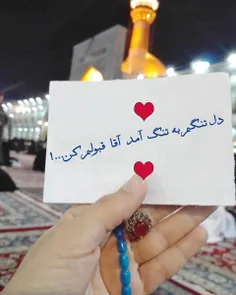 دل تنگم به تنگ آمد آقا قبولم کن...!